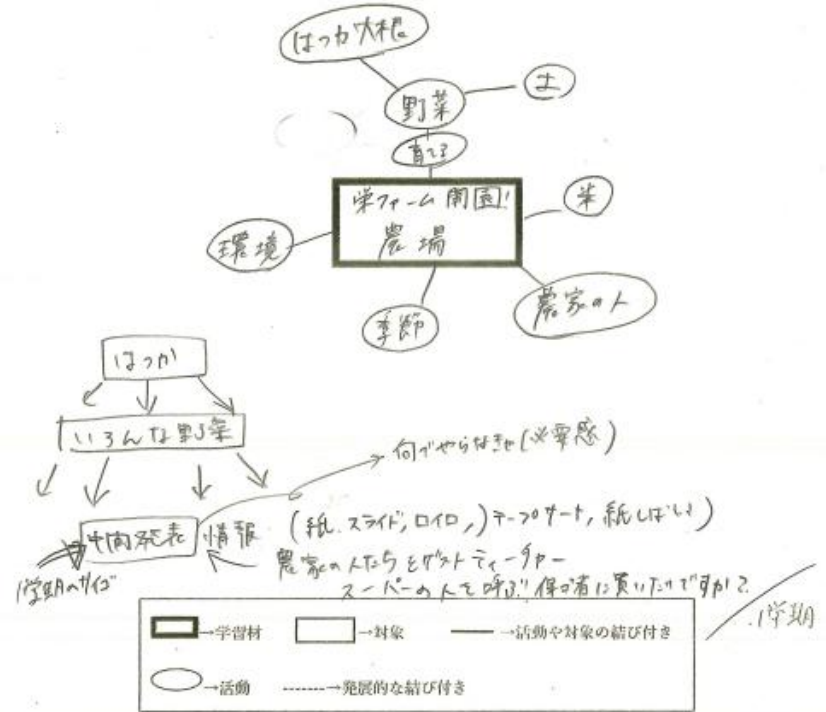 はっか大根
野菜
土
育てる
栄ファーム開園!
農場
米
環境
農家の人
季節
はっか
いろんな野菜
何でやらなきゃ(必要感)
中間発表 情報
(紙、スライド、ロイロ、)テープサート、紙しばい)
農家の人たちをゲストティーチャー
スーパーの人を呼ぶ 保ゴ者に買いたいですか?
1学期のサイゴ
1学期
→学習材 →対象 →活動や対象の結び付き
→活動 →発展的な結び付き